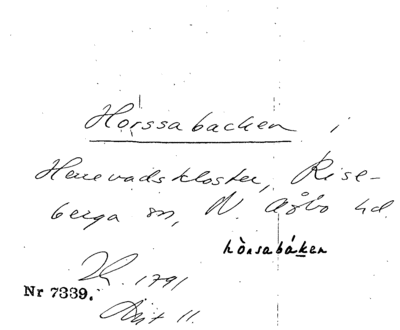 Horssabacken i
Herrevadskloster, Rise-
berga sn, N. Åsbo hd.
hòrsabáken
1791
Nr 7339. Akt 11.